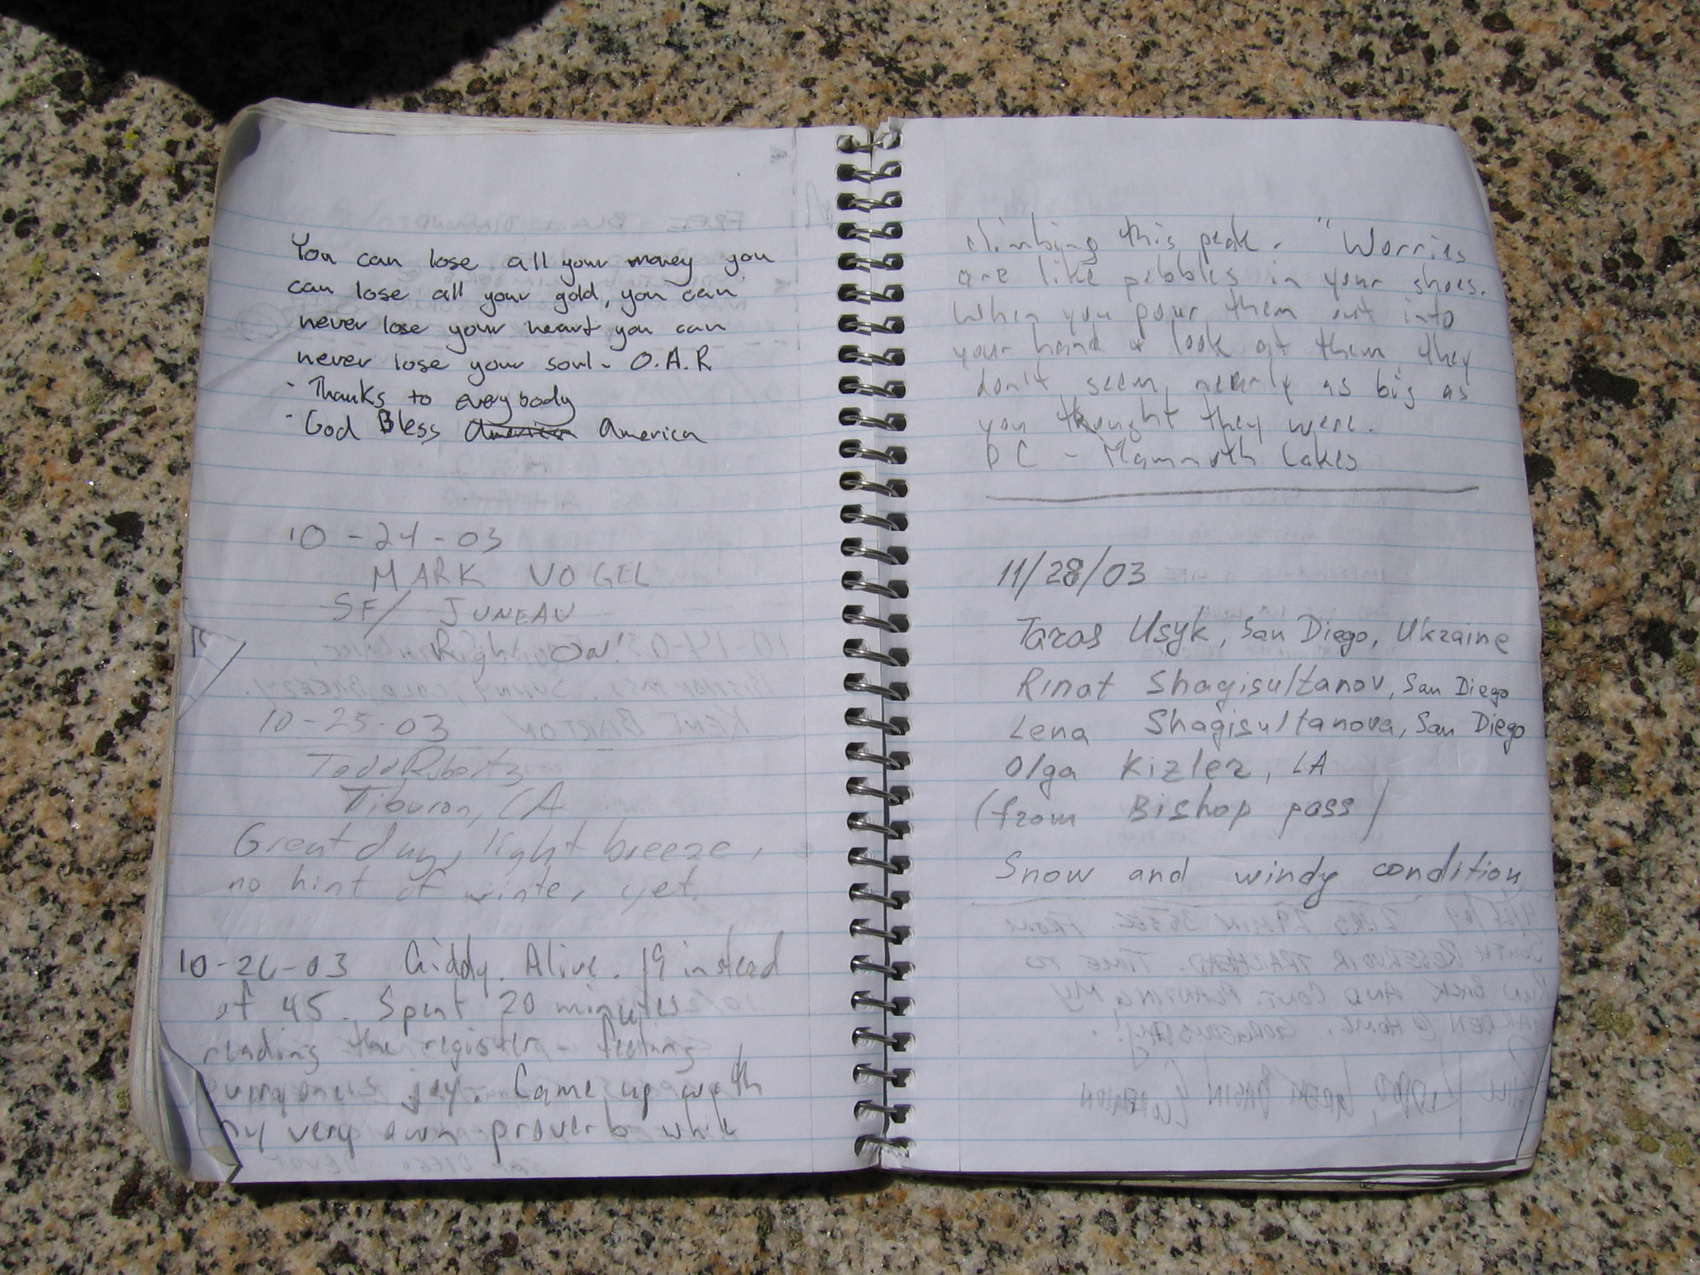 You can lose all your money you
can lose all your gold, you can
never lose your heart you can
never lose your soul - O.A.R
- Thanks to everybody
- God Bless America America
10-24-03
MARK VOGEL
SF/ JUNEAU
Right On!
10-25-03
Todd Roberts
Tiburon, CA
Great day, light breeze,
no hint of winter yet.
10-26-03 Giddy. Alive. 19 instead
of 45. Spent 20 minutes
reading the register - feeling
everyone's joy. Came up with
my very own proverb while
climbing this peak. "Worries
are like pebbles in your shoes.
When you pour them out into
your hand & look at them they
don't seem nearly as big as
you thought they were.
DC - Mammoth Lakes
11/28/03
Taras Usyk, San Diego, Ukraine
Rinat Shagisultanov, San Diego
Lena Shagisultanova, San Diego
Olga Kizler, LA
(from Bishop pass)
Snow and windy condition